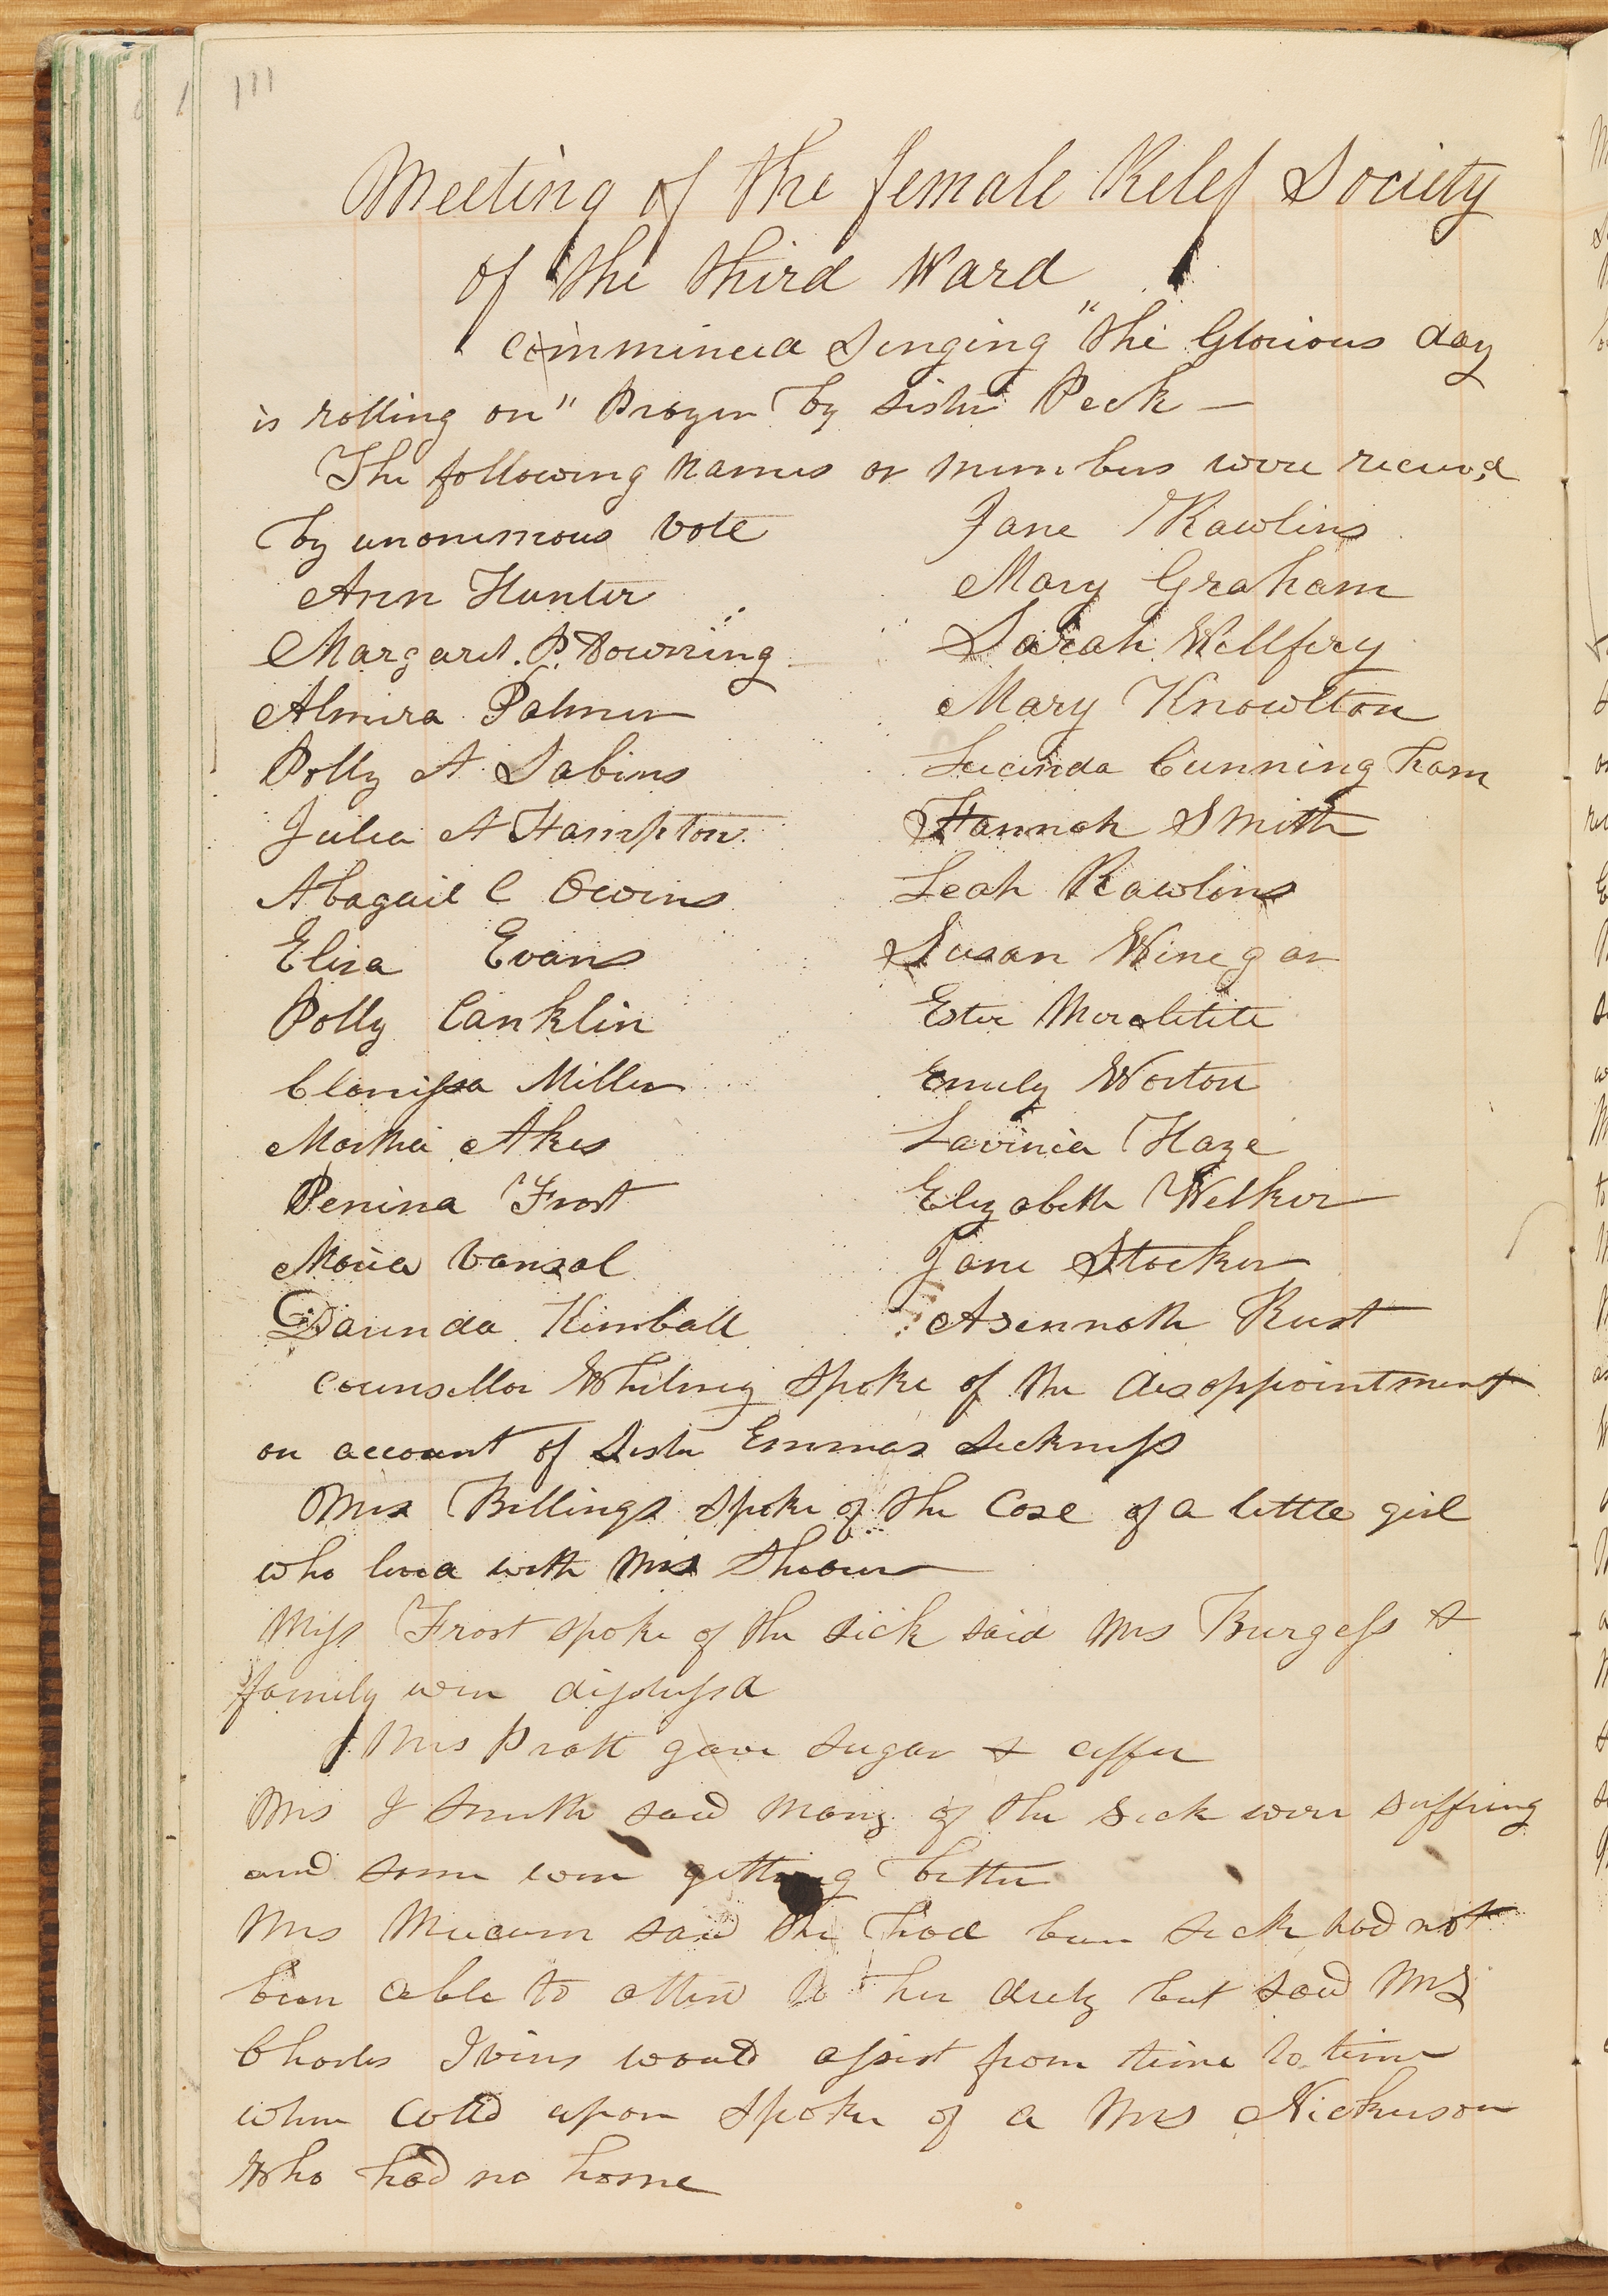 111
Meeting of the female Relef Society
of the third Ward
commincd Singing "the Glorious day
is rolling on" Prayer by sister Peck —
The following names or members were receivd
by unonimous vote
Ann Hunter
Margaret. P. Downing
Almira Palmer
Polly A Sabins
Julia A Hampton
Abagail C Owins
Eliza Evans
Polly Canklin
Clarissa Miller
Martha Akes
Penina Frost
Maria Vansal
Darinda Kimball
Jane Rawlins
Mary Graham
Sarah Wellfery
Mary Knowlton
Lucinda Cunningham
Hannah Smith
Leah Rawlins
Susan Winegar
Ester
Emily Worton
Lavinia Haze
Elizabeth Welker
Jane Stocker
Asennath Rust
counsellor Whitney spoke of the disappointment
on account of Sister Emmas Sickness
Mrs Billings spoke of the Case of a little girl
who livd with Mrs
Miss Frost spoke of the sick said Mrs Burgess &
family were distressd
Mrs Pratt gave sugar & coffee
Mrs J Smith said Many of the sick were suffring
and some were getting better
Mrs said she had been sick had not
been able to attend to her duty but said Mrs
Charles Ivins would assist from time to time
when calld upon spoke of a Mrs Nickerson
Who had no home